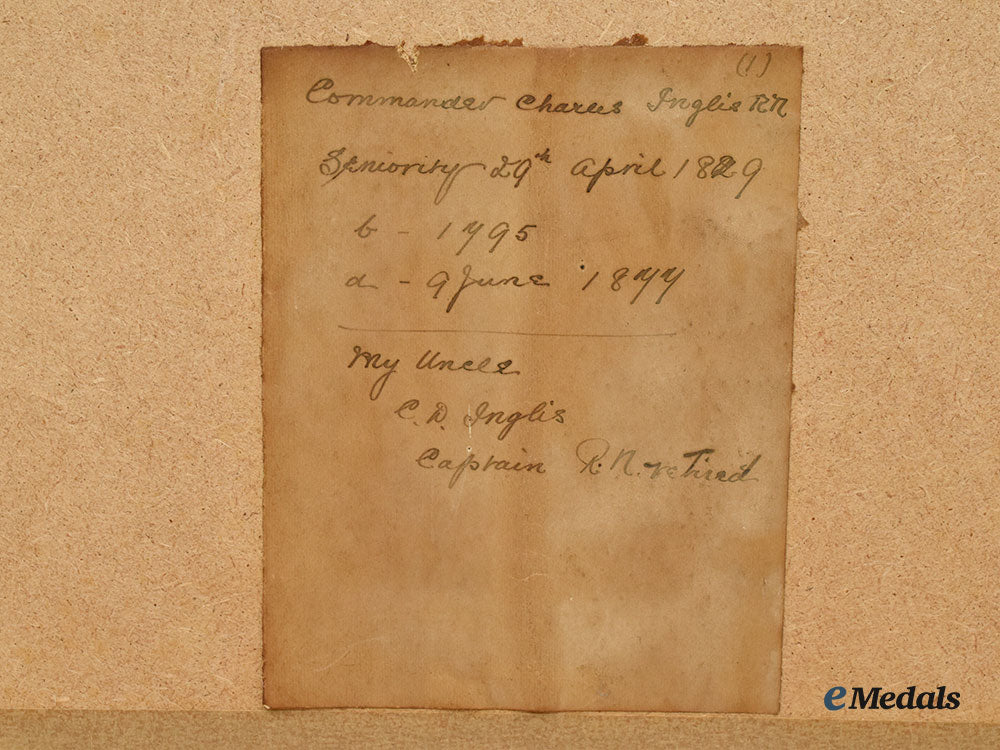 (1)
Commander Charles Inglis RN
Seniority 29th April 1829
b - 1795
d - 9 June 1877
My Uncle
C. D. Inglis
Captain R.N. retired
eMedals